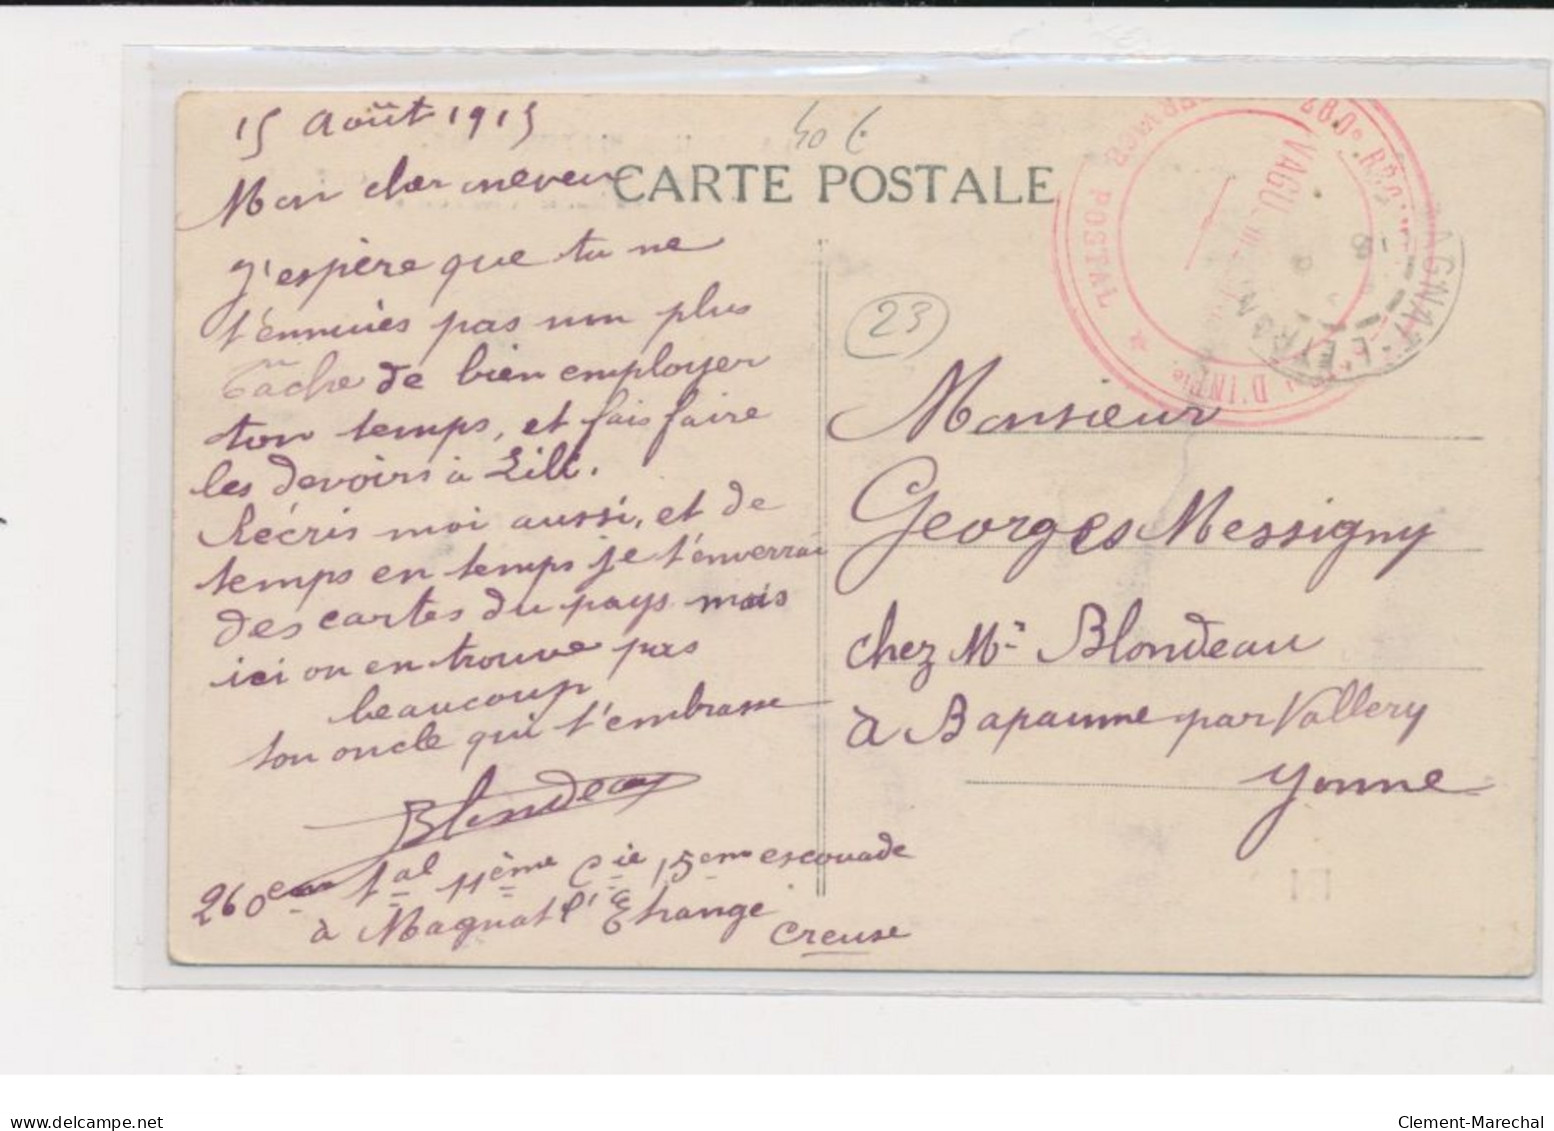 15 Août 1915
40 €
Mon cher neveu
CARTE POSTALE
J'espère que tu ne
t'ennuies pas non plus
tâche de bien employer
ton temps, et fais faire
les devoirs à Lili.
Récris moi aussi, et de
temps en temps je t'enverrai
des cartes du pays mais
ici on en trouve pas
beaucoup
ton oncle qui t'embrasse
Blondeau
260em tal 11ème Cie 15em escouade
à Magnat l'Etrange
Creuse
23
Monsieur
Georges Messigny
chez Mr Blondeau
à Bapaume par Vallery
Yonne
POSTAL
VAGUEM
D'INFie
AGNAT-L'ETRAN
www.delcampe.net
Clement-Marechal